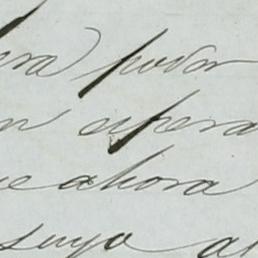 era podar
n espera
e ahora
suyo al